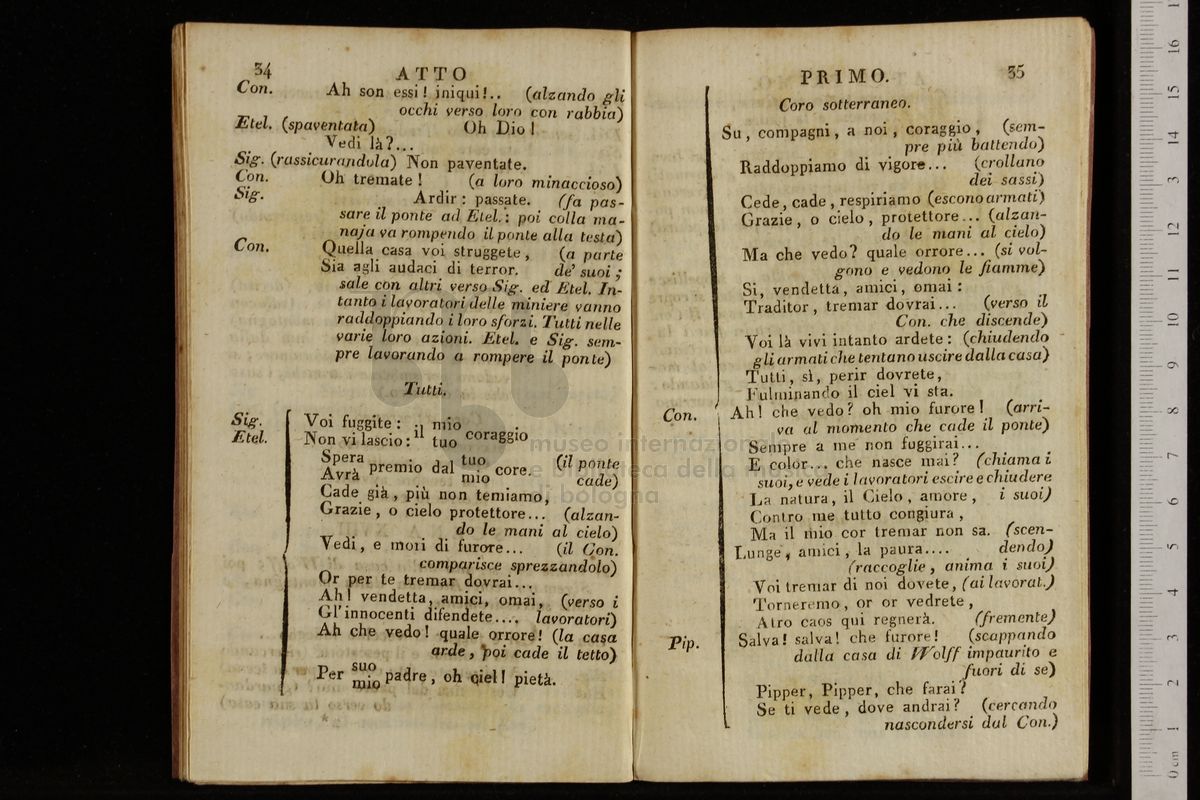 34
ATTO
Con. Ah son essi! iniqui!.. (alzando gli
occhi verso loro con rabbia)
Etel. (spaventata) Oh Dio!
Vedi là?...
Sig. (rassicurandola) Non paventate.
Con. Oh tremate! (a loro minaccioso)
Sig. Ardir: passate. (fa pas-
sare il ponte ad Etel.: poi colla ma-
naja va rompendo il ponte alla testa)
Con. Quella casa voi struggete, (a parte
Sia agli audaci di terror. de' suoi;
sale con altri verso Sig. ed Etel. In-
tanto i lavoratori delle miniere vanno
raddoppiando i loro sforzi. Tutti nelle
varie loro azioni. Etel. e Sig. sem-
pre lavorando a rompere il ponte)
Tutti.
Sig. Voi fuggite: il mio coraggio
Etel. Non vi lascio: il tuo coraggio
Spera premio dal tuo core. (il ponte
Avrà premio dal mio core. cade)
Cade già, più non temiamo,
Grazie, o cielo protettore... (alzan-
do le mani al cielo)
Vedi, e mori di furore... (il Con.
comparisce sprezzandolo)
Or per te tremar dovrai...
Ah! vendetta, amici, omai, (verso i
Gl'innocenti difendete.... lavoratori)
Ah che vedo! quale orrore! (la casa
arde, poi cade il tetto)
Per suo padre, oh ciel! pietà.
mio
*
PRIMO.
35
Coro sotterraneo.
Su, compagni, a noi, coraggio, (sem-
pre più battendo)
Raddoppiamo di vigore... (crollano
dei sassi)
Cede, cade, respiriamo (escono armati)
Grazie, o cielo, protettore... (alzan-
do le mani al cielo)
Ma che vedo? quale orrore... (si vol-
gono e vedono le fiamme)
Si, vendetta, amici, omai:
Traditor, tremar dovrai... (verso il
Con. che discende)
Voi là vivi intanto ardete: (chiudendo
gli armati che tentano uscire dalla casa)
Tutti, sì, perir dovrete,
Fulminando il ciel vi sta.
Con. Ah! che vedo? oh mio furore! (arri-
va al momento che cade il ponte)
Sempre a me non fuggirai...
E color... che nasce mai? (chiama i
suoi, e vede i lavoratori escire e chiudere
La natura, il Cielo, amore, i suoi)
Contro me tutto congiura,
Ma il mio cor tremar non sa. (scen-
Lunge, amici, la paura.... dendo)
(raccoglie, anima i suoi)
Voi tremar di noi dovete, (ai lavorat.)
Torneremo, or or vedrete,
Atro caos qui regnerà. (fremente)
Pip. Salva! salva! che furore! (scappando
dalla casa di Wolff impaurito e
fuori di se)
Pipper, Pipper, che farai?
Se ti vede, dove andrai? (cercando
nascondersi dal Con.)
museo internazionale
e biblioteca della musica
di bologna
0 cm 1 2 3 4 5 6 7 8 9 10 11 12 13 14 15 16